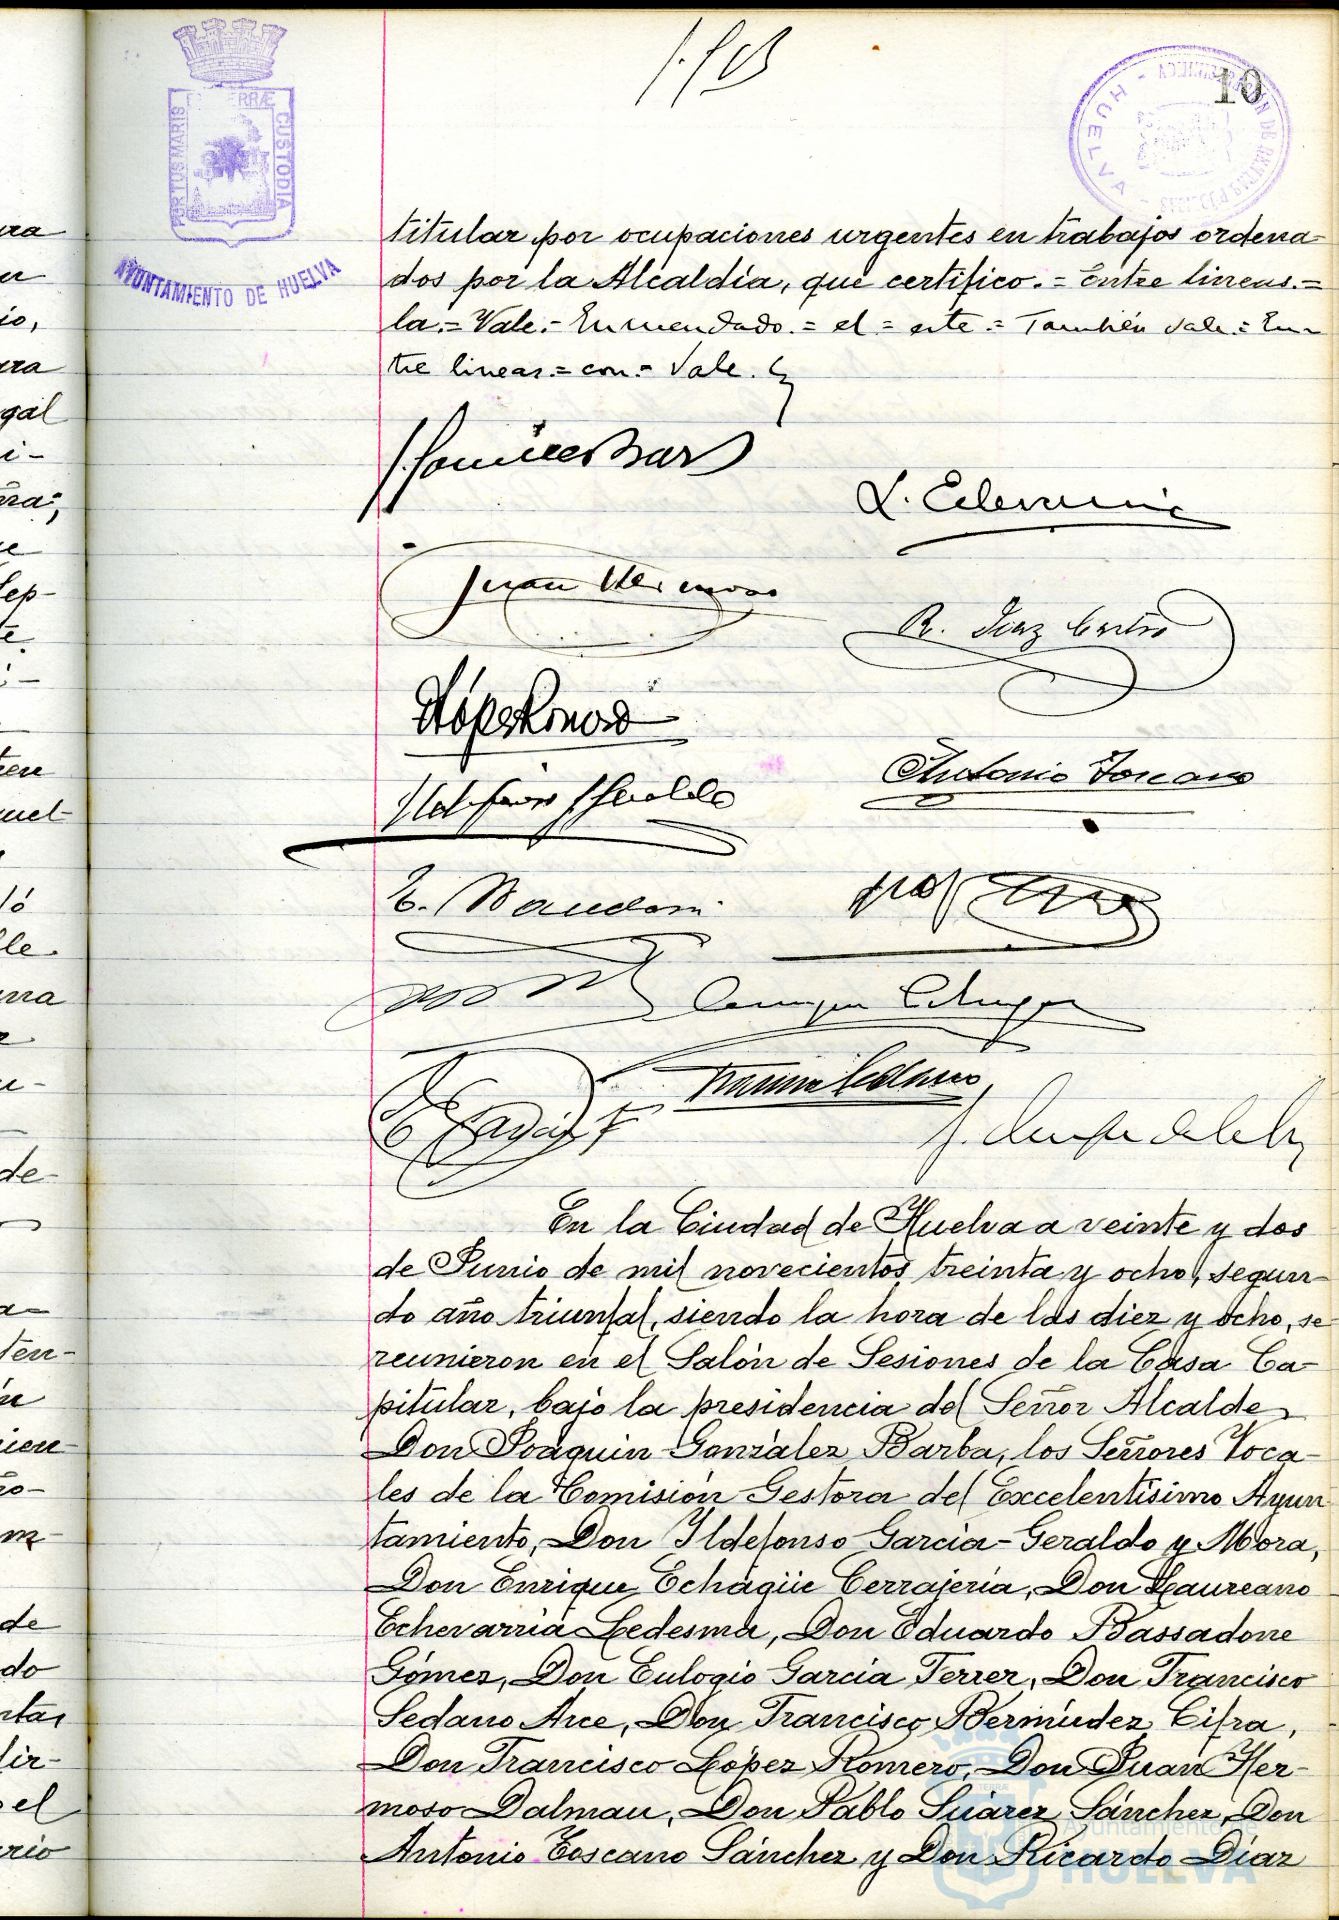 10
PORTUS MARIS
ERRÆ
CUSTODIA
AYUNTAMIENTO DE HUELVA
HUELVA
titular por ocupaciones urgentes en trabajos ordena=
dos por la Alcaldía, que certifico.= Entre lineas.=
la.= Vale.- Enmendado.= el = este = También vale.= En-
tre lineas.= con.= Vale.
L. Echevarria
Juan Hermoso
R. Diaz Castro
FLópezRomero
Antonio Toscano
Ildefonso GGeraldo
E. Bassadone
Enrique Echague
E García F
En la Ciudad de Huelva a veinte y dos
de Junio de mil novecientos treinta y ocho, segun-
do año triunfal, siendo la hora de las diez y ocho, se
reunieron en el Salón de Sesiones de la Casa Ca-
pitular, bajo la presidencia del Señor Alcalde
Don Joaquin González Barba, los Señores Voca-
les de la Comisión Gestora del Excelentisimo Ayun
tamiento, Don Ildefonso Garcia-Geraldo y Mora,
Don Enrique Echagüe Cerrajeria, Don Laureano
Echevarria Ledesma, Don Eduardo Bassadone
Gómez, Don Eulogio Garcia Ferrer, Don Francisco
Sedano Arce, Don Francisco Bermúdez Cifra,
Don Francisco López Romero, Don Juan Her-
moso Dalmau, Don Pablo Suárez Sánchez, Don
Antonio Toscano Sánchez y Don Ricardo Diaz
Ayuntamiento de
HUELVA